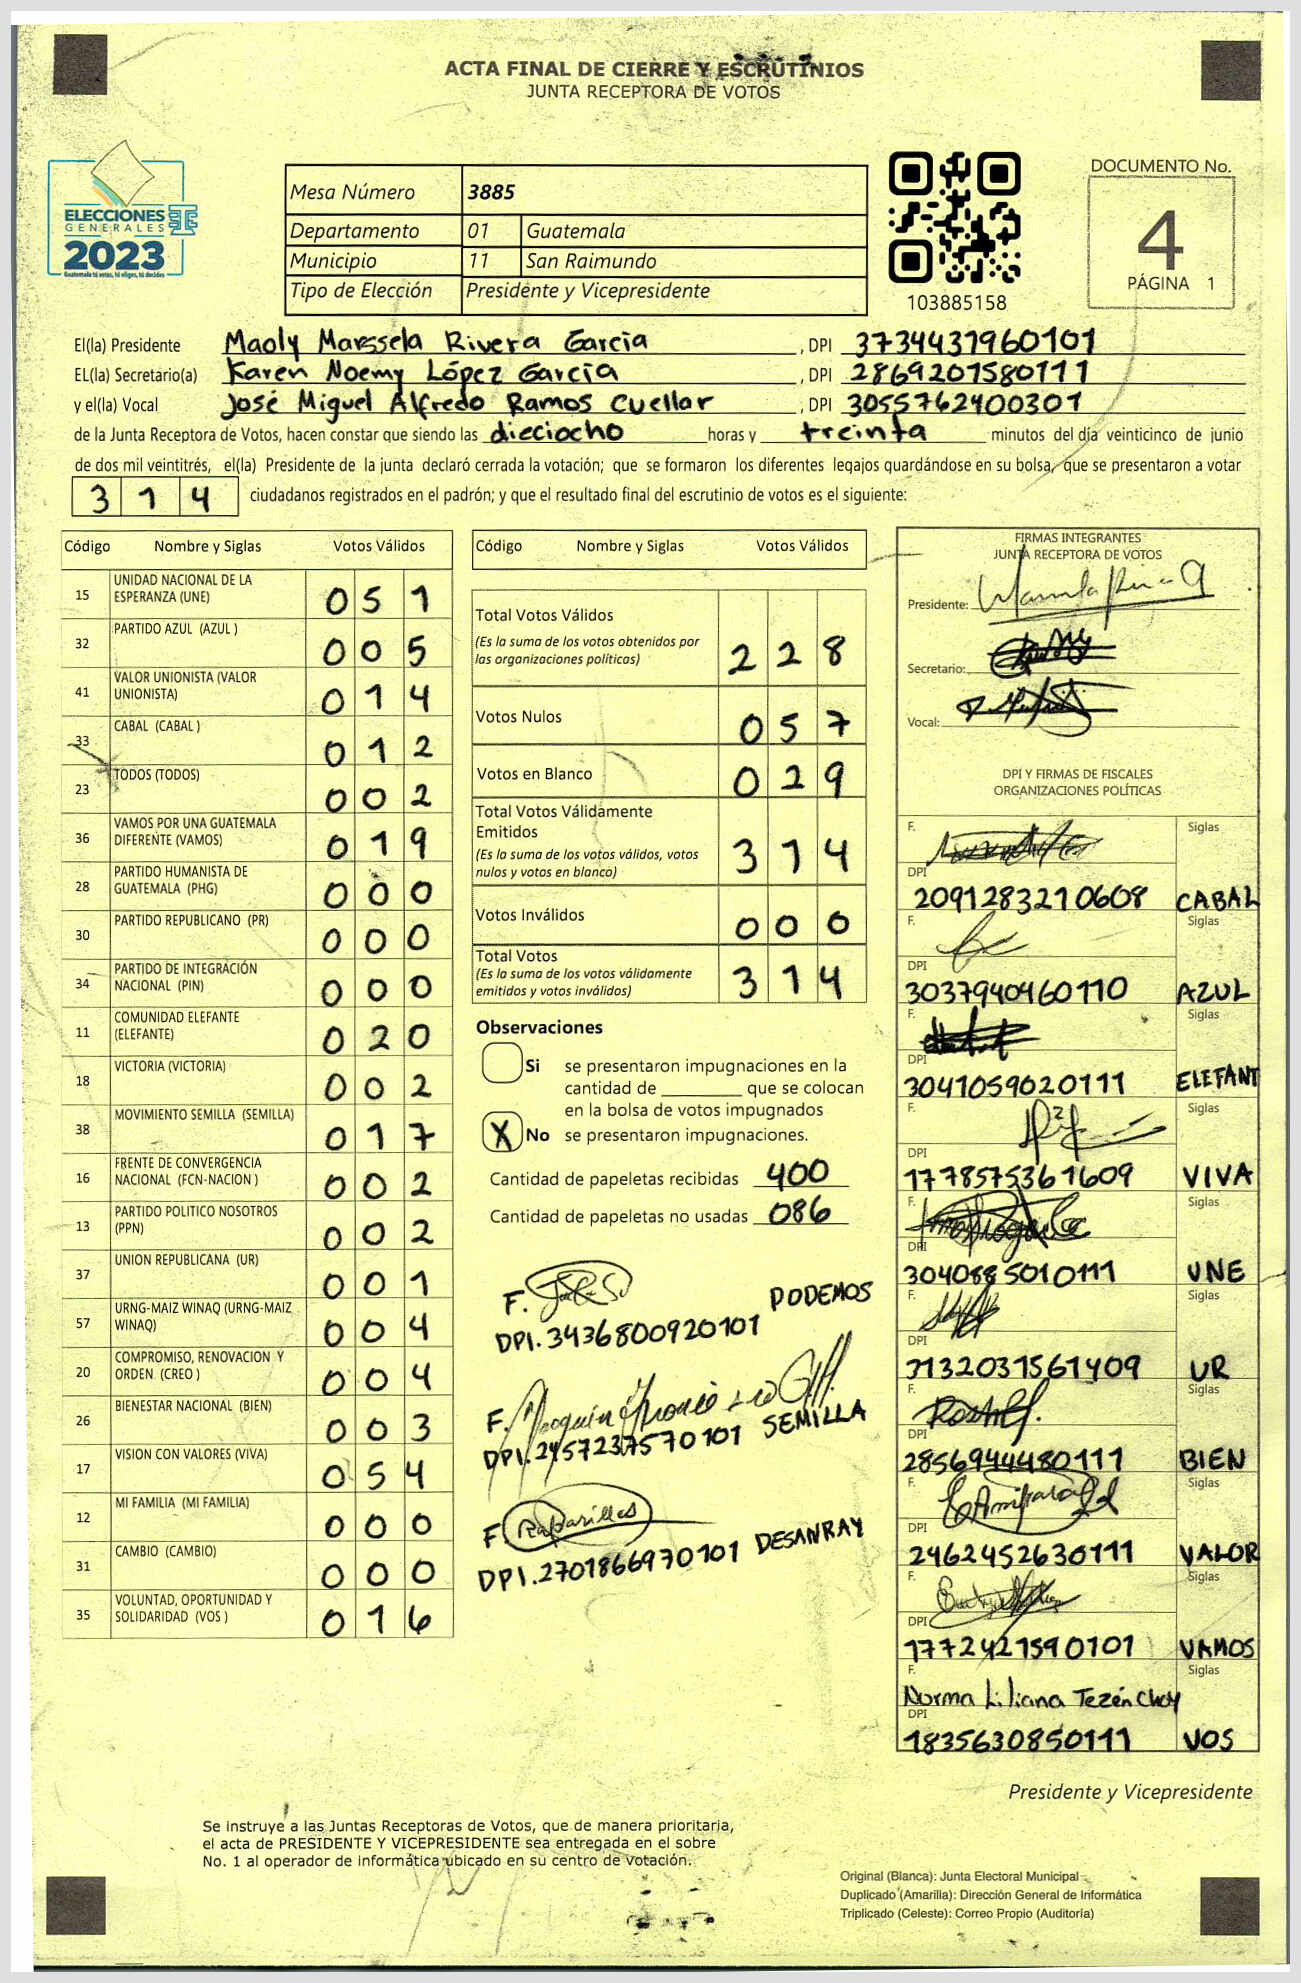 ACTA FINAL DE CIERRE Y ESCRUTINIOS
JUNTA RECEPTORA DE VOTOS
ELECCIONES
GENERALES
2023
Guatemala tú votas, tú eliges, tú decides
Mesa Número 3885
Departamento 01 Guatemala
Municipio 11 San Raimundo
Tipo de Elección Presidente y Vicepresidente
103885158
DOCUMENTO No.
4
PÁGINA 1
El(la) Presidente Maoly Marssela Rivera García , DPI 3734431960101
EL(la) Secretario(a) Karen Noemy López García , DPI 2869201580111
y el(la) Vocal José Miguel Alfredo Ramos Cuellar , DPI 3055762400301
de la Junta Receptora de Votos, hacen constar que siendo las dieciocho horas y treinta minutos del día veinticinco de junio
de dos mil veintitrés, el(la) Presidente de la junta declaró cerrada la votación; que se formaron los diferentes legajos guardándose en su bolsa, que se presentaron a votar
3 1 4 ciudadanos registrados en el padrón; y que el resultado final del escrutinio de votos es el siguiente:
Código Nombre y Siglas Votos Válidos
15 UNIDAD NACIONAL DE LA ESPERANZA (UNE) 0 5 1
32 PARTIDO AZUL (AZUL ) 0 0 5
41 VALOR UNIONISTA (VALOR UNIONISTA) 0 1 4
33 CABAL (CABAL ) 0 1 2
23 TODOS (TODOS) 0 0 2
36 VAMOS POR UNA GUATEMALA DIFERENTE (VAMOS) 0 1 9
28 PARTIDO HUMANISTA DE GUATEMALA (PHG) 0 0 0
30 PARTIDO REPUBLICANO (PR) 0 0 0
34 PARTIDO DE INTEGRACIÓN NACIONAL (PIN) 0 0 0
11 COMUNIDAD ELEFANTE (ELEFANTE) 0 2 0
18 VICTORIA (VICTORIA) 0 0 2
38 MOVIMIENTO SEMILLA (SEMILLA) 0 1 7
16 FRENTE DE CONVERGENCIA NACIONAL (FCN-NACION ) 0 0 2
13 PARTIDO POLITICO NOSOTROS (PPN) 0 0 2
37 UNION REPUBLICANA (UR) 0 0 1
57 URNG-MAIZ WINAQ (URNG-MAIZ WINAQ) 0 0 4
20 COMPROMISO, RENOVACION Y ORDEN (CREO ) 0 0 4
26 BIENESTAR NACIONAL (BIEN) 0 0 3
17 VISION CON VALORES (VIVA) 0 5 4
12 MI FAMILIA (MI FAMILIA) 0 0 0
31 CAMBIO (CAMBIO) 0 0 0
35 VOLUNTAD, OPORTUNIDAD Y SOLIDARIDAD (VOS ) 0 1 6
Código Nombre y Siglas Votos Válidos
Total Votos Válidos
(Es la suma de los votos obtenidos por
las organizaciones políticas) 2 2 8
Votos Nulos 0 5 7
Votos en Blanco 0 2 9
Total Votos Válidamente
Emitidos
(Es la suma de los votos válidos, votos
nulos y votos en blanco) 3 1 4
Votos Inválidos 0 0 0
Total Votos
(Es la suma de los votos válidamente
emitidos y votos inválidos) 3 1 4
Observaciones
Si se presentaron impugnaciones en la
cantidad de ________ que se colocan
en la bolsa de votos impugnados
X No se presentaron impugnaciones.
Cantidad de papeletas recibidas 400
Cantidad de papeletas no usadas 086
F. PODEMOS
DPI.3436800920101
F.
DPI.2457237570101 SEMILLA
F
DPI.2701866970101 DESANRAY
FIRMAS INTEGRANTES
JUNTA RECEPTORA DE VOTOS
Presidente:
Secretario:
Vocal:
DPI Y FIRMAS DE FISCALES
ORGANIZACIONES POLÍTICAS
F. Siglas
DPI
2091283210608 CABAL
F. Siglas
DPI
3037940460110 AZUL
F. Siglas
DPI
3041059020111 ELEFANT
F. Siglas
DPI
1778575361609 VIVA
F. Siglas
DPI
3040885010111 UNE
F. Siglas
DPI
3132031561409 UR
F. Siglas
DPI
2856944480111 BIEN
F. Siglas
DPI
2462452630111 VALOR
F. Siglas
DPI
1772421590101 VAMOS
F. Siglas
Norma Liliana Tezén Choy
DPI
1835630850111 VOS
Presidente y Vicepresidente
Se instruye a las Juntas Receptoras de Votos, que de manera prioritaria,
el acta de PRESIDENTE Y VICEPRESIDENTE sea entregada en el sobre
No. 1 al operador de informática ubicado en su centro de votación.
Original (Blanca): Junta Electoral Municipal
Duplicado (Amarilla): Dirección General de Informática
Triplicado (Celeste): Correo Propio (Auditoría)